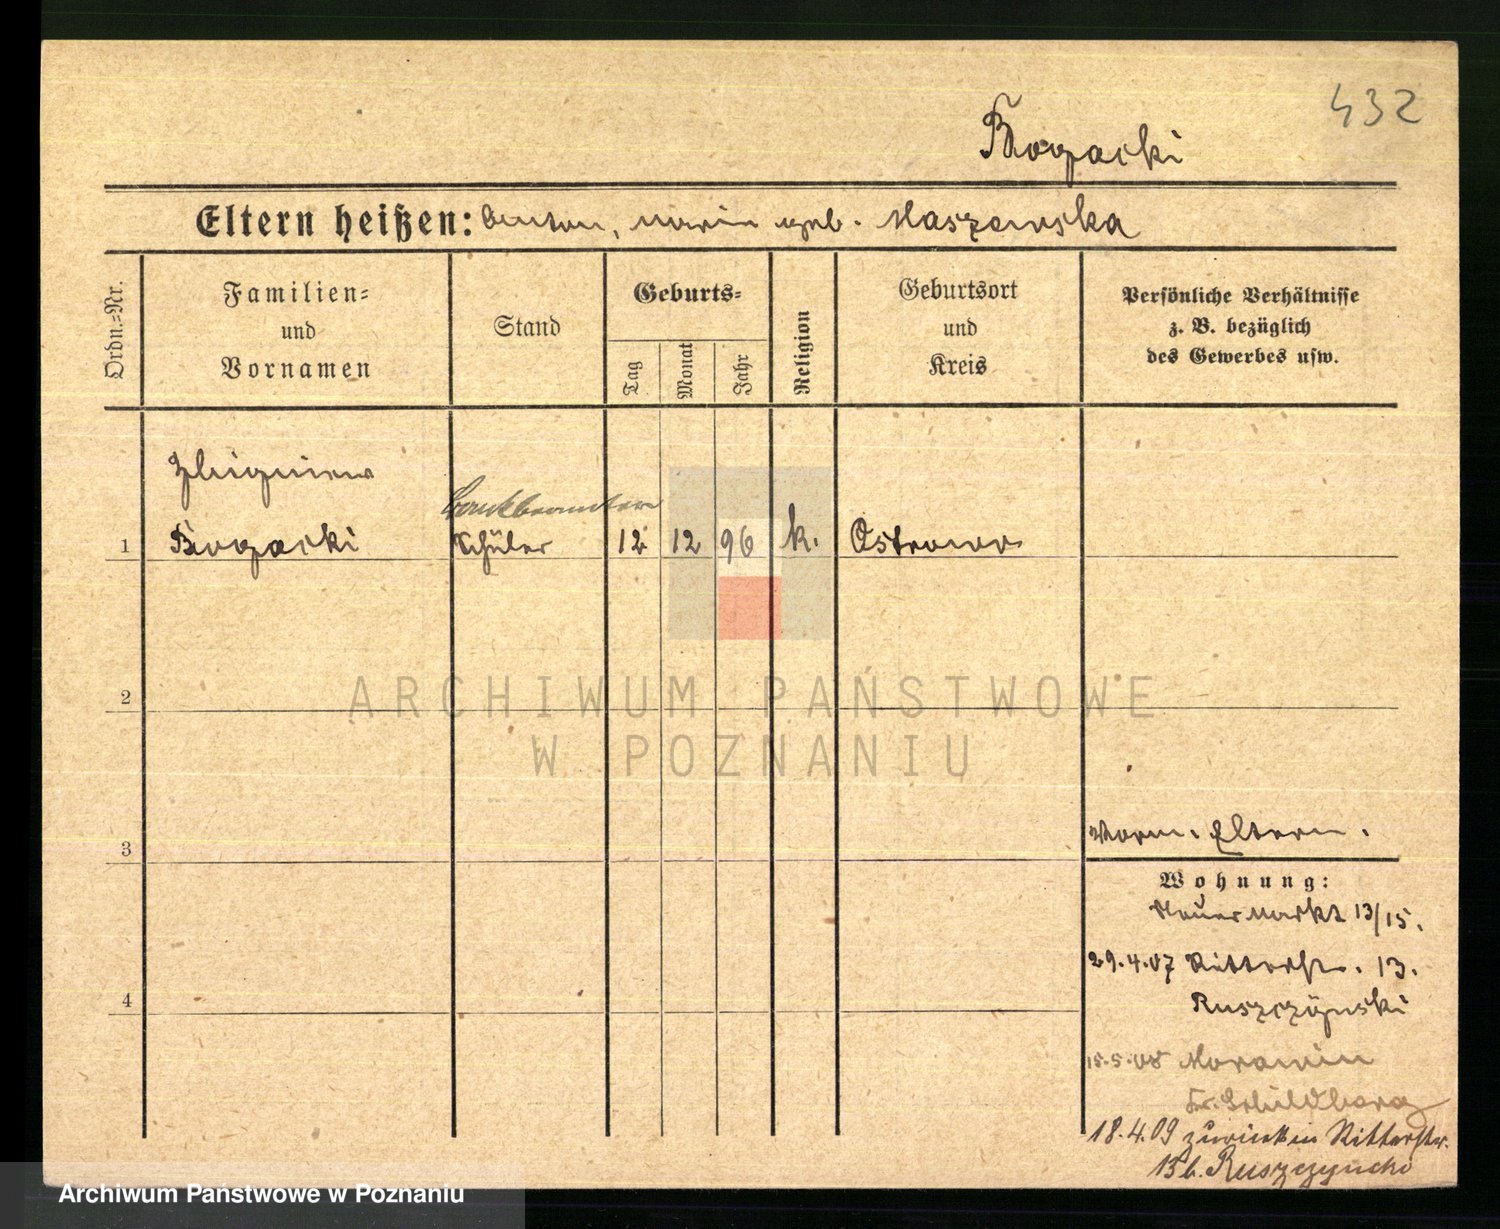 432
Bogacki
Eltern heißen: Anton, Marie geb. Maszewska
Ordn.-Nr.
Familien-
und
Vornamen
Stand
Geburts-
Tag
Monat
Jahr
Religion
Geburtsort
und
Kreis
Persönliche Verhältnisse
z. B. bezüglich
des Gewerbes usw.
Zbigniew
Bankbeamter
1 Bogacki Schüler 12 12 96 k. Ostrowo
2
3
4
Vorm. Eltern.
Wohnung:
Neuer Markt 13/15.
29.4.07 Ritterstr. 13.
Ruszczÿnski
15.5.08
Kr. Schildberg
18.4.09 zurück in Ritterstr.
13 b. Ruszczynski
ARCHIWUM PAŃSTWOWE
W POZNANIU
Archiwum Państwowe w Poznaniu